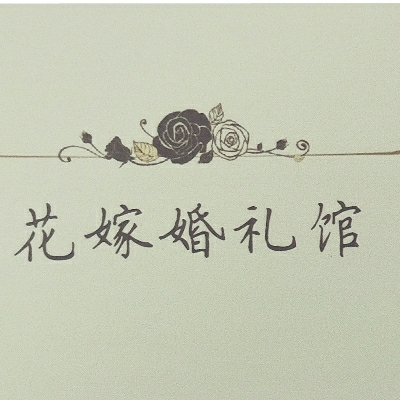 花嫁婚礼馆